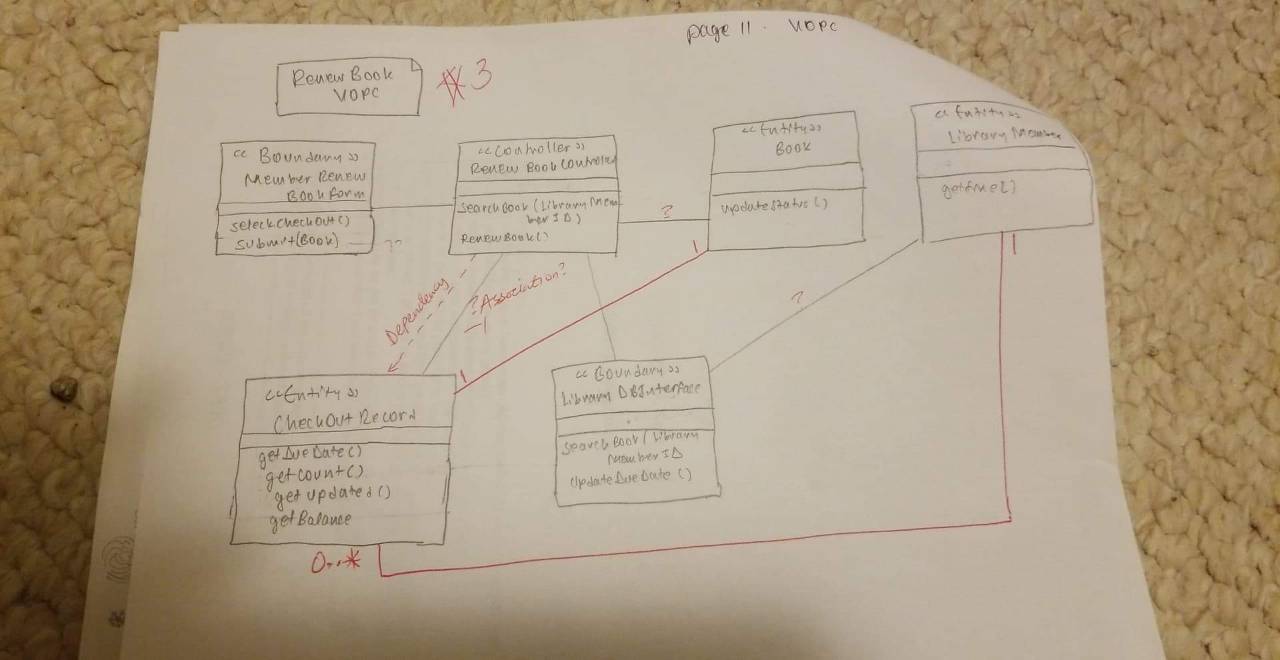 page 11. VOPC
Renew Book
VOPC
#3
<< Boundary >>
Member Renew
Book Form
selectCheckOut()
submit(Book)
??
<<Controller>>
Renew Book Controller
searchBook (Library Mem
ber ID)
RenewBook()
?
<<Entity>>
Book
updateStatus()
1
<<Entity>>
Library Member
getfine()
1
Dependency
? Association?
?
1
<<Entity>>
CheckOut Record
getDueDate()
getCount()
getUpdated()
getBalance
0..*
<<Boundary>>
Library DBInterface
searchBook (Library
Member ID
UpdateDueDate()